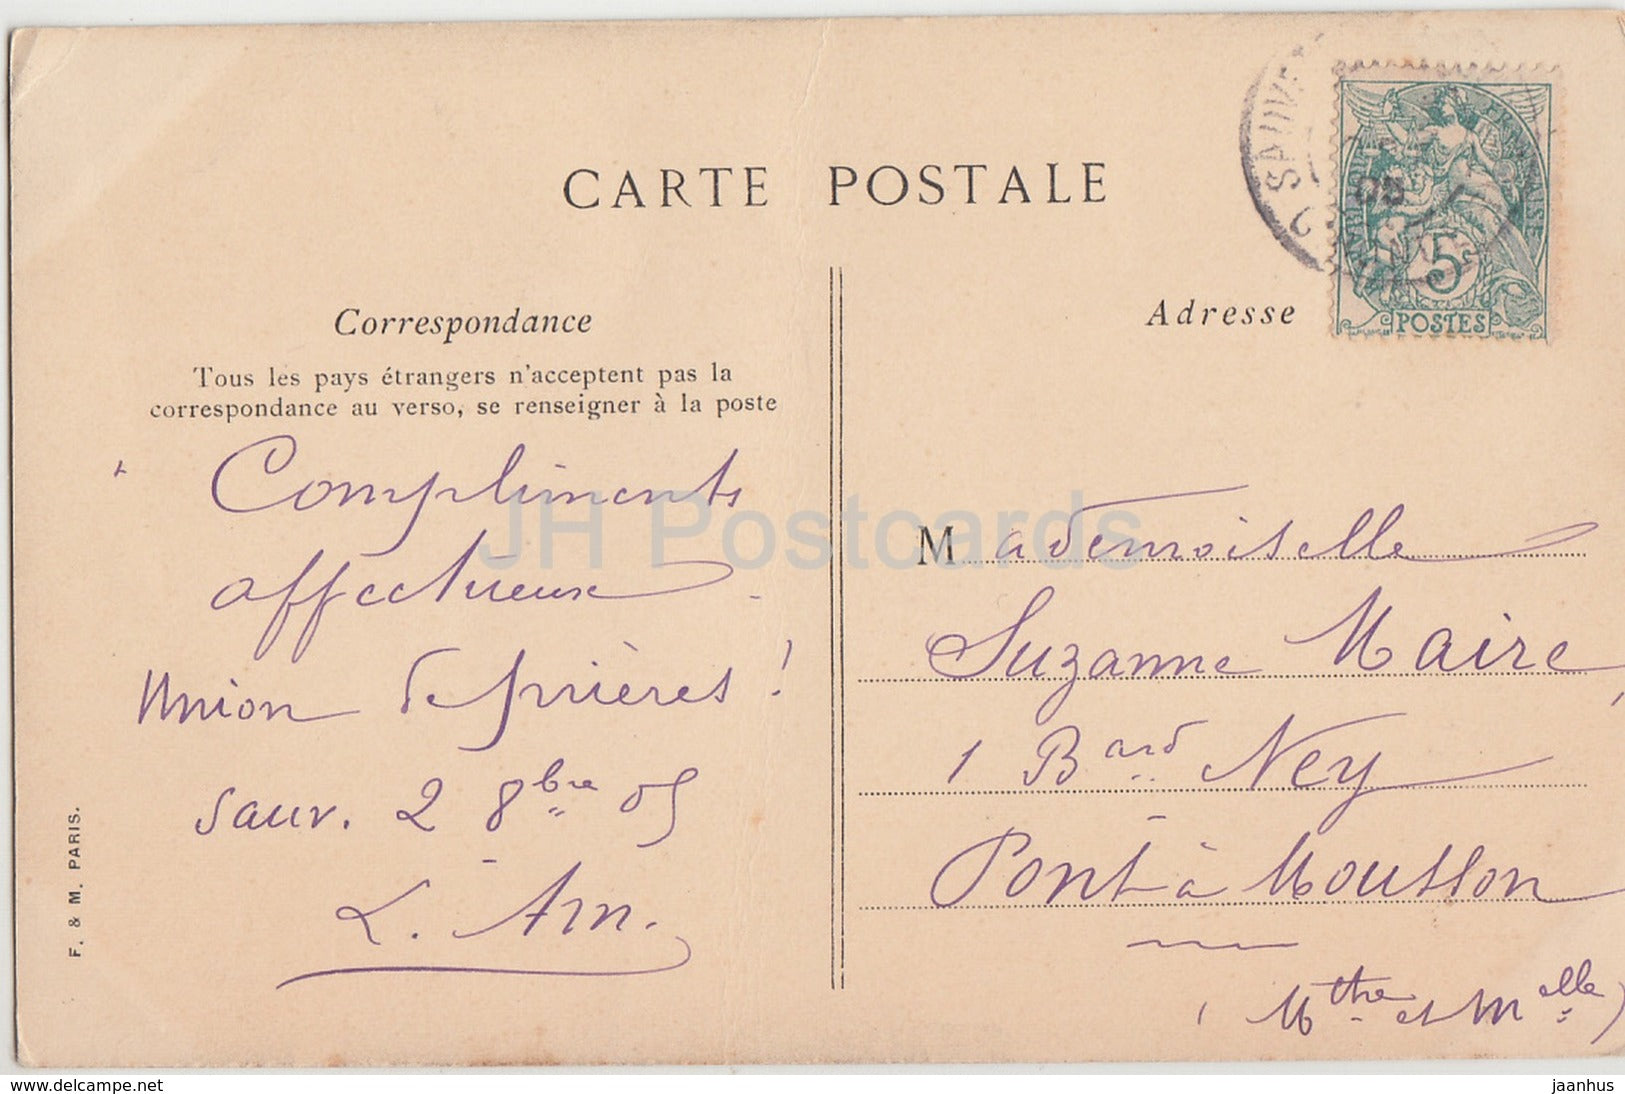 CARTE POSTALE
Correspondance
Tous les pays étrangers n'acceptent pas la
correspondance au verso, se renseigner à la poste
Compliments
affectueux.
Union de prières !
Sauv. 2 8bre 05
L. Arn.
F. & M. PARIS.
Adresse
Mademoiselle
Suzanne Maire
1 Bard Ney
Pont à Mousson
(Mthe et Melle)
5
POSTES
05
JH Postcards
www.delcampe.net
jaanhus